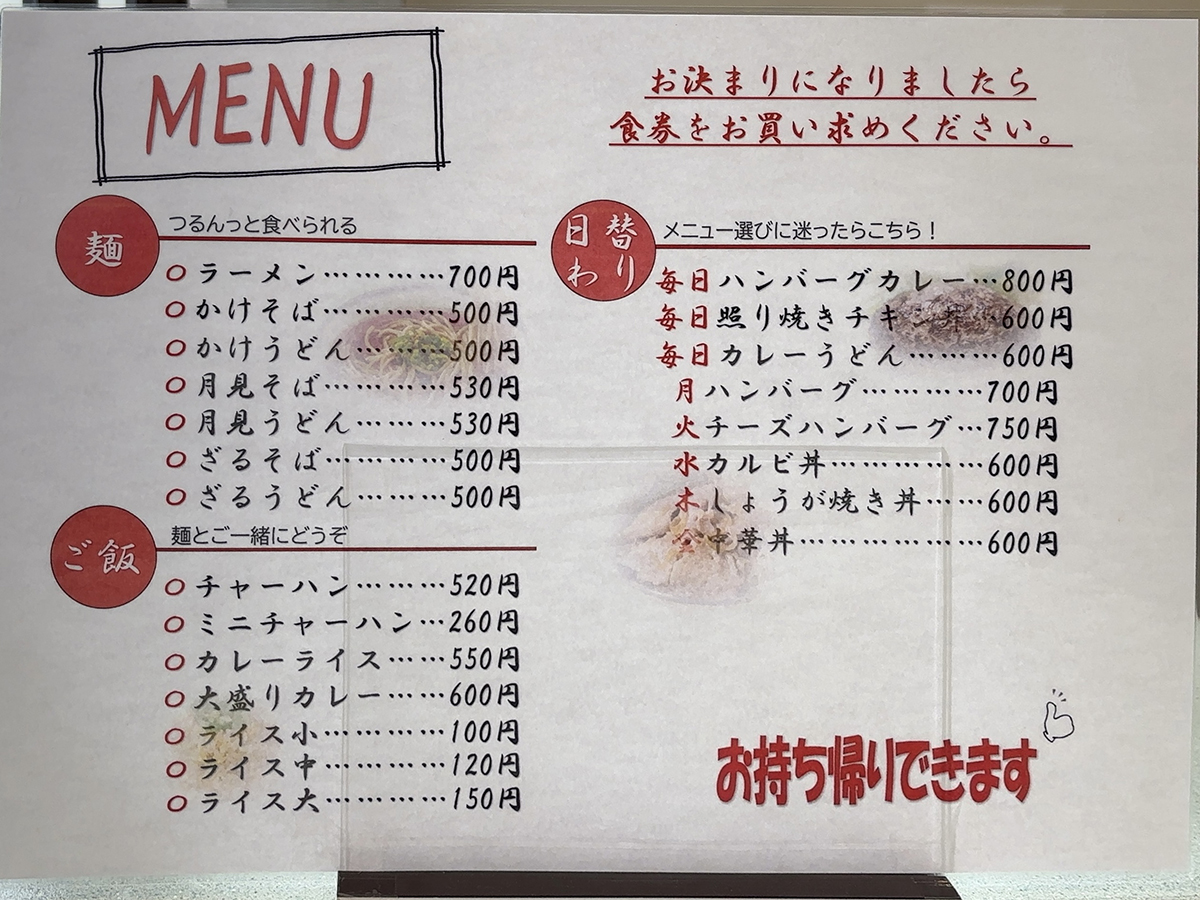 MENU
お決まりになりましたら
食券をお買い求めください。
麺
つるんっと食べられる
○ラーメン…………700円
○かけそば…………500円
○かけうどん………500円
○月見そば…………530円
○月見うどん………530円
○ざるそば…………500円
○ざるうどん………500円
ご飯
麺とご一緒にどうぞ
○チャーハン………520円
○ミニチャーハン…260円
○カレーライス……550円
○大盛りカレー……600円
○ライス小…………100円
○ライス中…………120円
○ライス大…………150円
日替わり
メニュー選びに迷ったらこちら！
毎日ハンバーグカレー…800円
毎日照り焼きチキン丼…600円
毎日カレーうどん………600円
月ハンバーグ…………700円
火チーズハンバーグ…750円
水カルビ丼……………600円
木しょうが焼き丼……600円
金中華丼………………600円
お持ち帰りできます